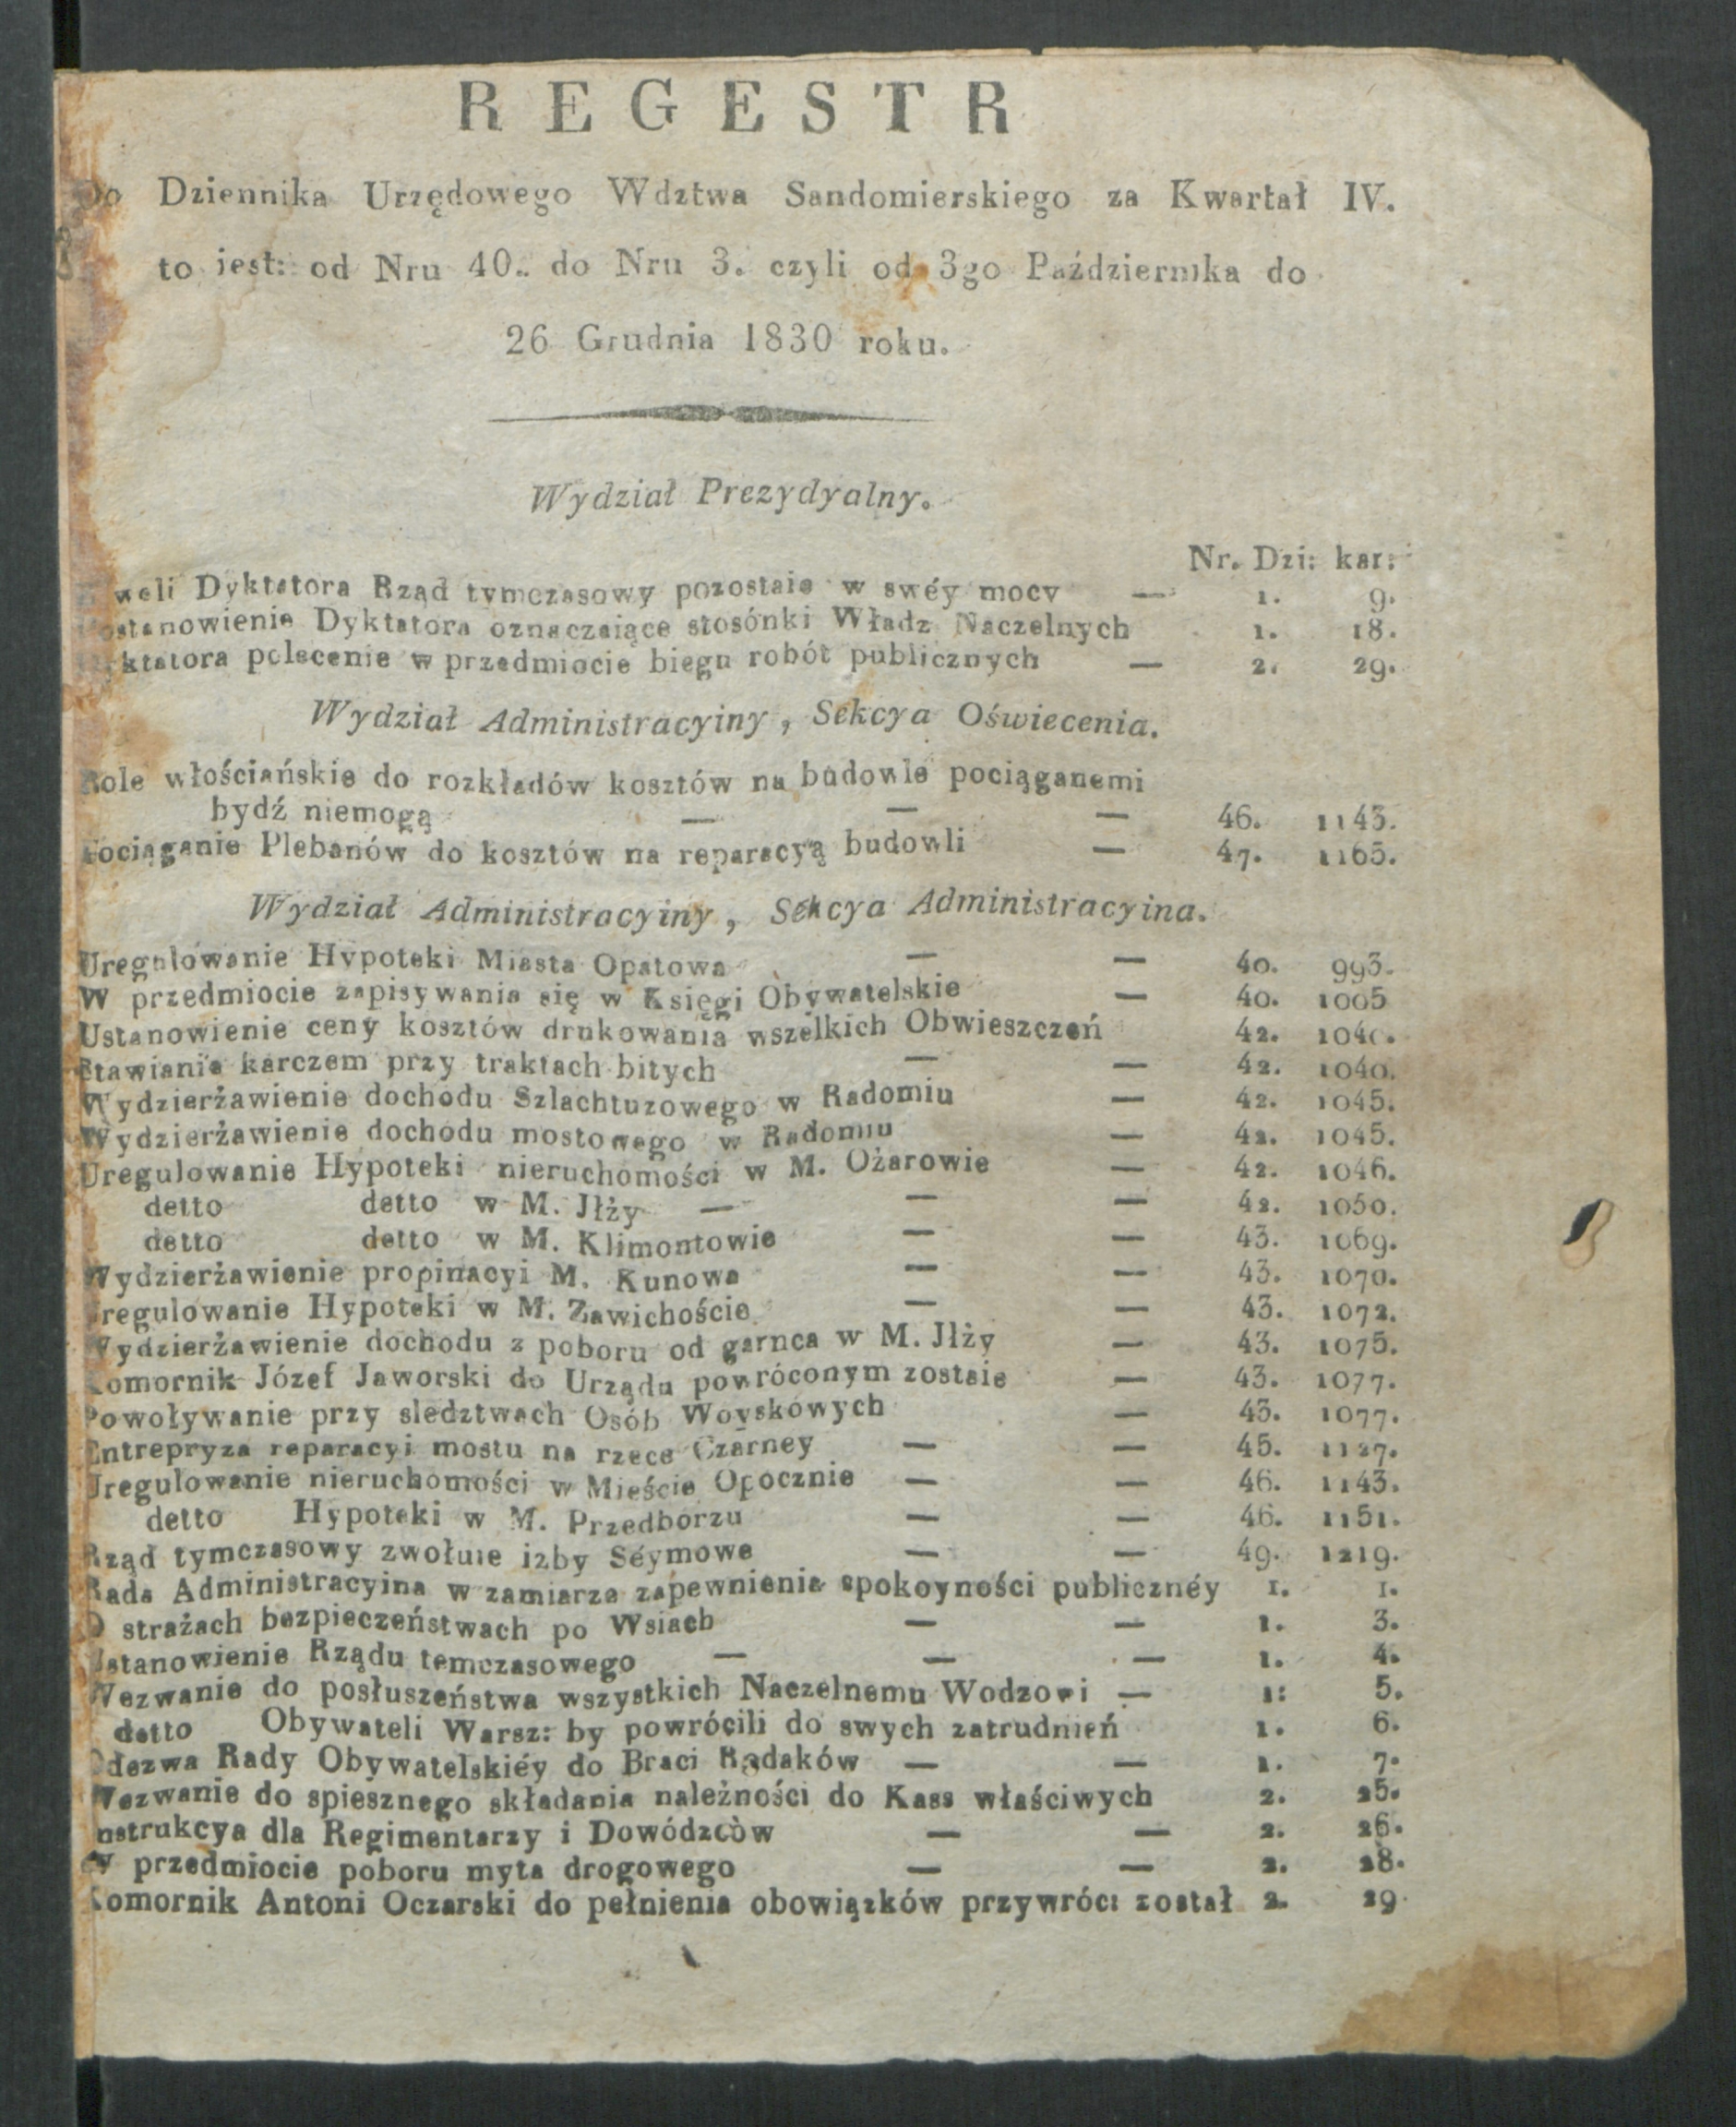 REGESTR
Do Dziennika Urzędowego Wdztwa Sandomierskiego za Kwartał IV.
to iest: od Nru 40.. do Nru 3. czyli od 3go Października do
26 Grudnia 1830 roku.
Wydział Prezydyalny.
Nr. Dzi: kar:
woli Dyktatora Rząd tymczasowy pozostaie w swéy mocy — 1. 9.
Postanowienie Dyktatora oznaczaiące stosónki Władz Naczelnych 1. 18.
Dyktatora polecenie w przedmiocie biegu robót publicznych — 2. 29.
Wydział Administracyiny, Sekcya Oświecenia.
Role włościańskie do rozkładów kosztów na budowle pociąganemi
bydź niemogą — — — 46. 1143.
Pociąganie Plebanów do kosztów na reparacyą budowli — 47. 1165.
Wydział Administracyiny, Sekcya Administracyina.
Uregulowanie Hypoteki Miasta Opatowa — — 40. 993.
W przedmiocie zapisywania się w Księgi Obywatelskie — 40. 1005
Ustanowienie ceny kosztów drukowania wszelkich Obwieszczeń 42. 1040.
Stawiania karczem przy traktach bitych — — 42. 1040.
Wydzierżawienie dochodu Szlachtuzowego w Radomiu — 42. 1045.
Wydzierżawienie dochodu mostowego w Radomiu — 42. 1045.
Uregulowanie Hypoteki nieruchomości w M. Ożarowie — 42. 1046.
detto detto w M. Jłży — — — 42. 1050.
detto detto w M. Klimontowie — — 43. 1069.
Wydzierżawienie propinacyi M. Kunowa — — 43. 1070.
Uregulowanie Hypoteki w M. Zawichoście — — 43. 1072.
Wydzierżawienie dochodu z poboru od garnca w M. Jłży — 43. 1075.
Komornik Józef Jaworski do Urządu powróconym zostaie — 43. 1077.
Powoływanie przy sledztwach Osób Woyskówych — 43. 1077.
Entrepryza reparacyi mostu na rzece Czarney — — 45. 1127.
Uregulowanie nieruchomości w Mieście Opocznie — — 46. 1143.
detto Hypoteki w M. Przedborzu — — 46. 1151.
Rząd tymczasowy zwołuie izby Séymowe — — 49. 1219.
Rada Administracyina w zamiarze zapewnienia spokoyności publicznéy 1. 1.
O strażach bezpieczeństwach po Wsiach — — 1. 3.
Ustanowienie Rządu temczasowego — — — 1. 4.
Wezwanie do posłuszeństwa wszystkich Naczelnemu Wodzowi — 1: 5.
detto Obywateli Warsz: by powrócili do swych zatrudnień 1. 6.
Odezwa Rady Obywatelskiéy do Braci Rodaków — — 1. 7.
Wezwanie do spiesznego składania należności do Kass właściwych 2. 25.
Instrukcya dla Regimentarzy i Dowódzców — — 2. 26.
W przedmiocie poboru myta drogowego — — 2. 28.
Komornik Antoni Oczarski do pełnienia obowiązków przywróc: został 2. 29.